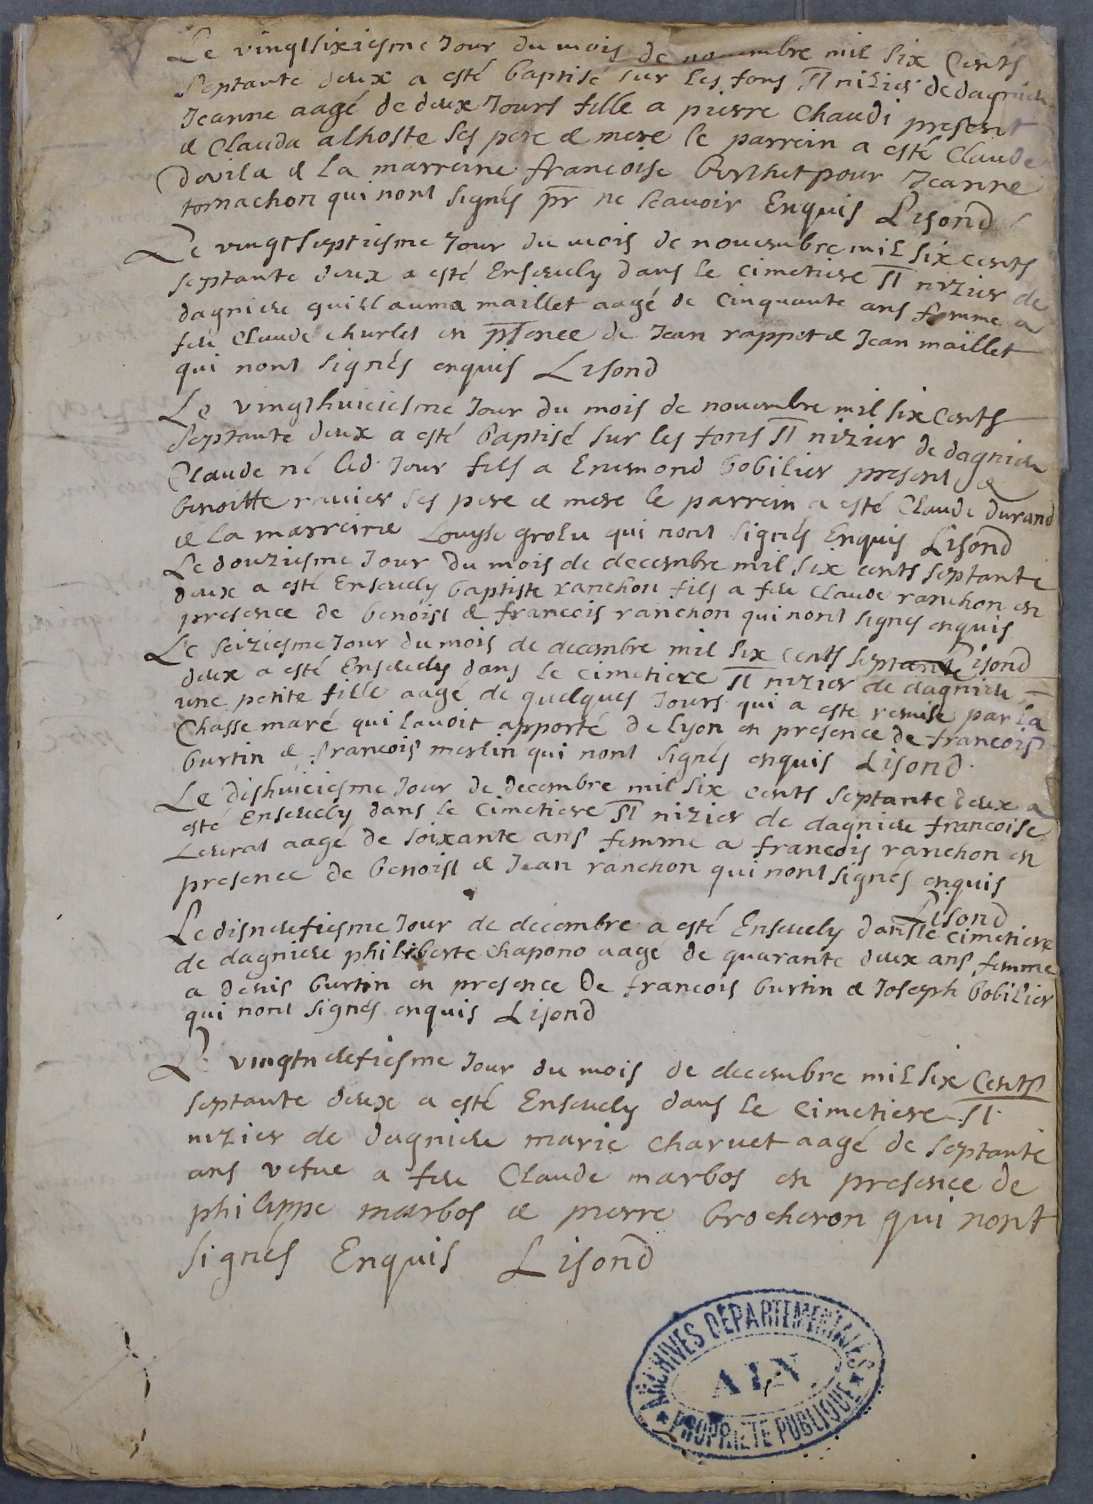 Le vingtsixiesme Jour du mois de novembre mil six Cents
Septante deux a esté baptisé sur les fons St nizier de dagnieu
Jeanne aagé de deux Jours fille a pierre Chaudi present
& Clauda alhoste ses pere & mere le parrein a esté Claude
Dovila & la marreine francoise berthet pour Jeanne
tomachon qui nont signés pr ne scavoir Enquis Lisond
Le vingtseptiesme Jour du mois de nouembre mil six cents
septante deux a esté Enseuely dans le cimetiere St nizier de
dagnieu guillauma maillet aagé de cinquante ans femme a
feu Claude churlet en pnce de Jean rappet & Jean maillet
qui nont signés enquis Lisond
Le vingthuiciesme Jour du mois de nouembre mil six Cents
Septante deux a esté baptisé sur les fons St nizier de dagnieu
Claude né led. Jour fils a Enemond bobilier present &
benoitte reuier ses pere & mere le parrein a esté Claude durand
& la marreine Louyse grolu qui nont signés Enquis Lisond
Le douziesme Jour du mois de decembre mil six cents septante
deux a esté Enseuely baptiste ranchon fils a feu Claude ranchon en
presence de benoist & francois ranchon qui nont signes enquis
Lisond
Le seiziesme Jour du mois de decembre mil six cents septante
deux a esté Enseuely dans le cimetiere St nizier de dagnieu
une petite fille aagé de quelques Jours qui a esté remise par la
Chasse maré qui lavoit apporté de lyon en presence de francois
burtin & francois merlin qui nont signés enquis Lisond.
Le dishuiciesme Jour de decembre mil six cents septante deux a
esté Enseuely dans le cimetiere St nizier de dagnieu francoise
Leurat aagé de soixante ans femme a francois ranchon en
presence de benoist & Jean ranchon qui nont signés enquis
Lisond
Le disneufiesme Jour de decembre a esté Enseuely dans le cimetiere
de dagnieu philiberte chapono aagé de quarante deux ans femme
a denis burtin en presence de francois burtin & Joseph bobilier
qui nont signés enquis Lisond
Le vingtneufiesme Jour du mois de decembre mil six Cents
septante deux a esté Enseuely dans le cimetiere St
nizier de dagnieu marie charuet aagé de septante
ans vefue a feu Claude marbos en presence de
philippe marbos & pierre brocheron qui nont
signés Enquis Lisond
ARCHIVES DÉPARTEMENTALES
AIN
PROPRIÉTÉ PUBLIQUE